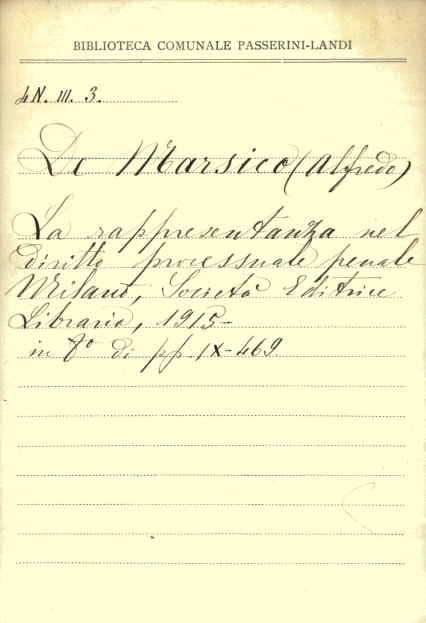 BIBLIOTECA COMUNALE PASSERINI-LANDI
4N. III. 3.
De Marsico (Alfredo)
La rappresentanza nel
diritto processuale penale
Milano, Società Editrice
Libraria, 1915-
in 8º di pp. IX-469